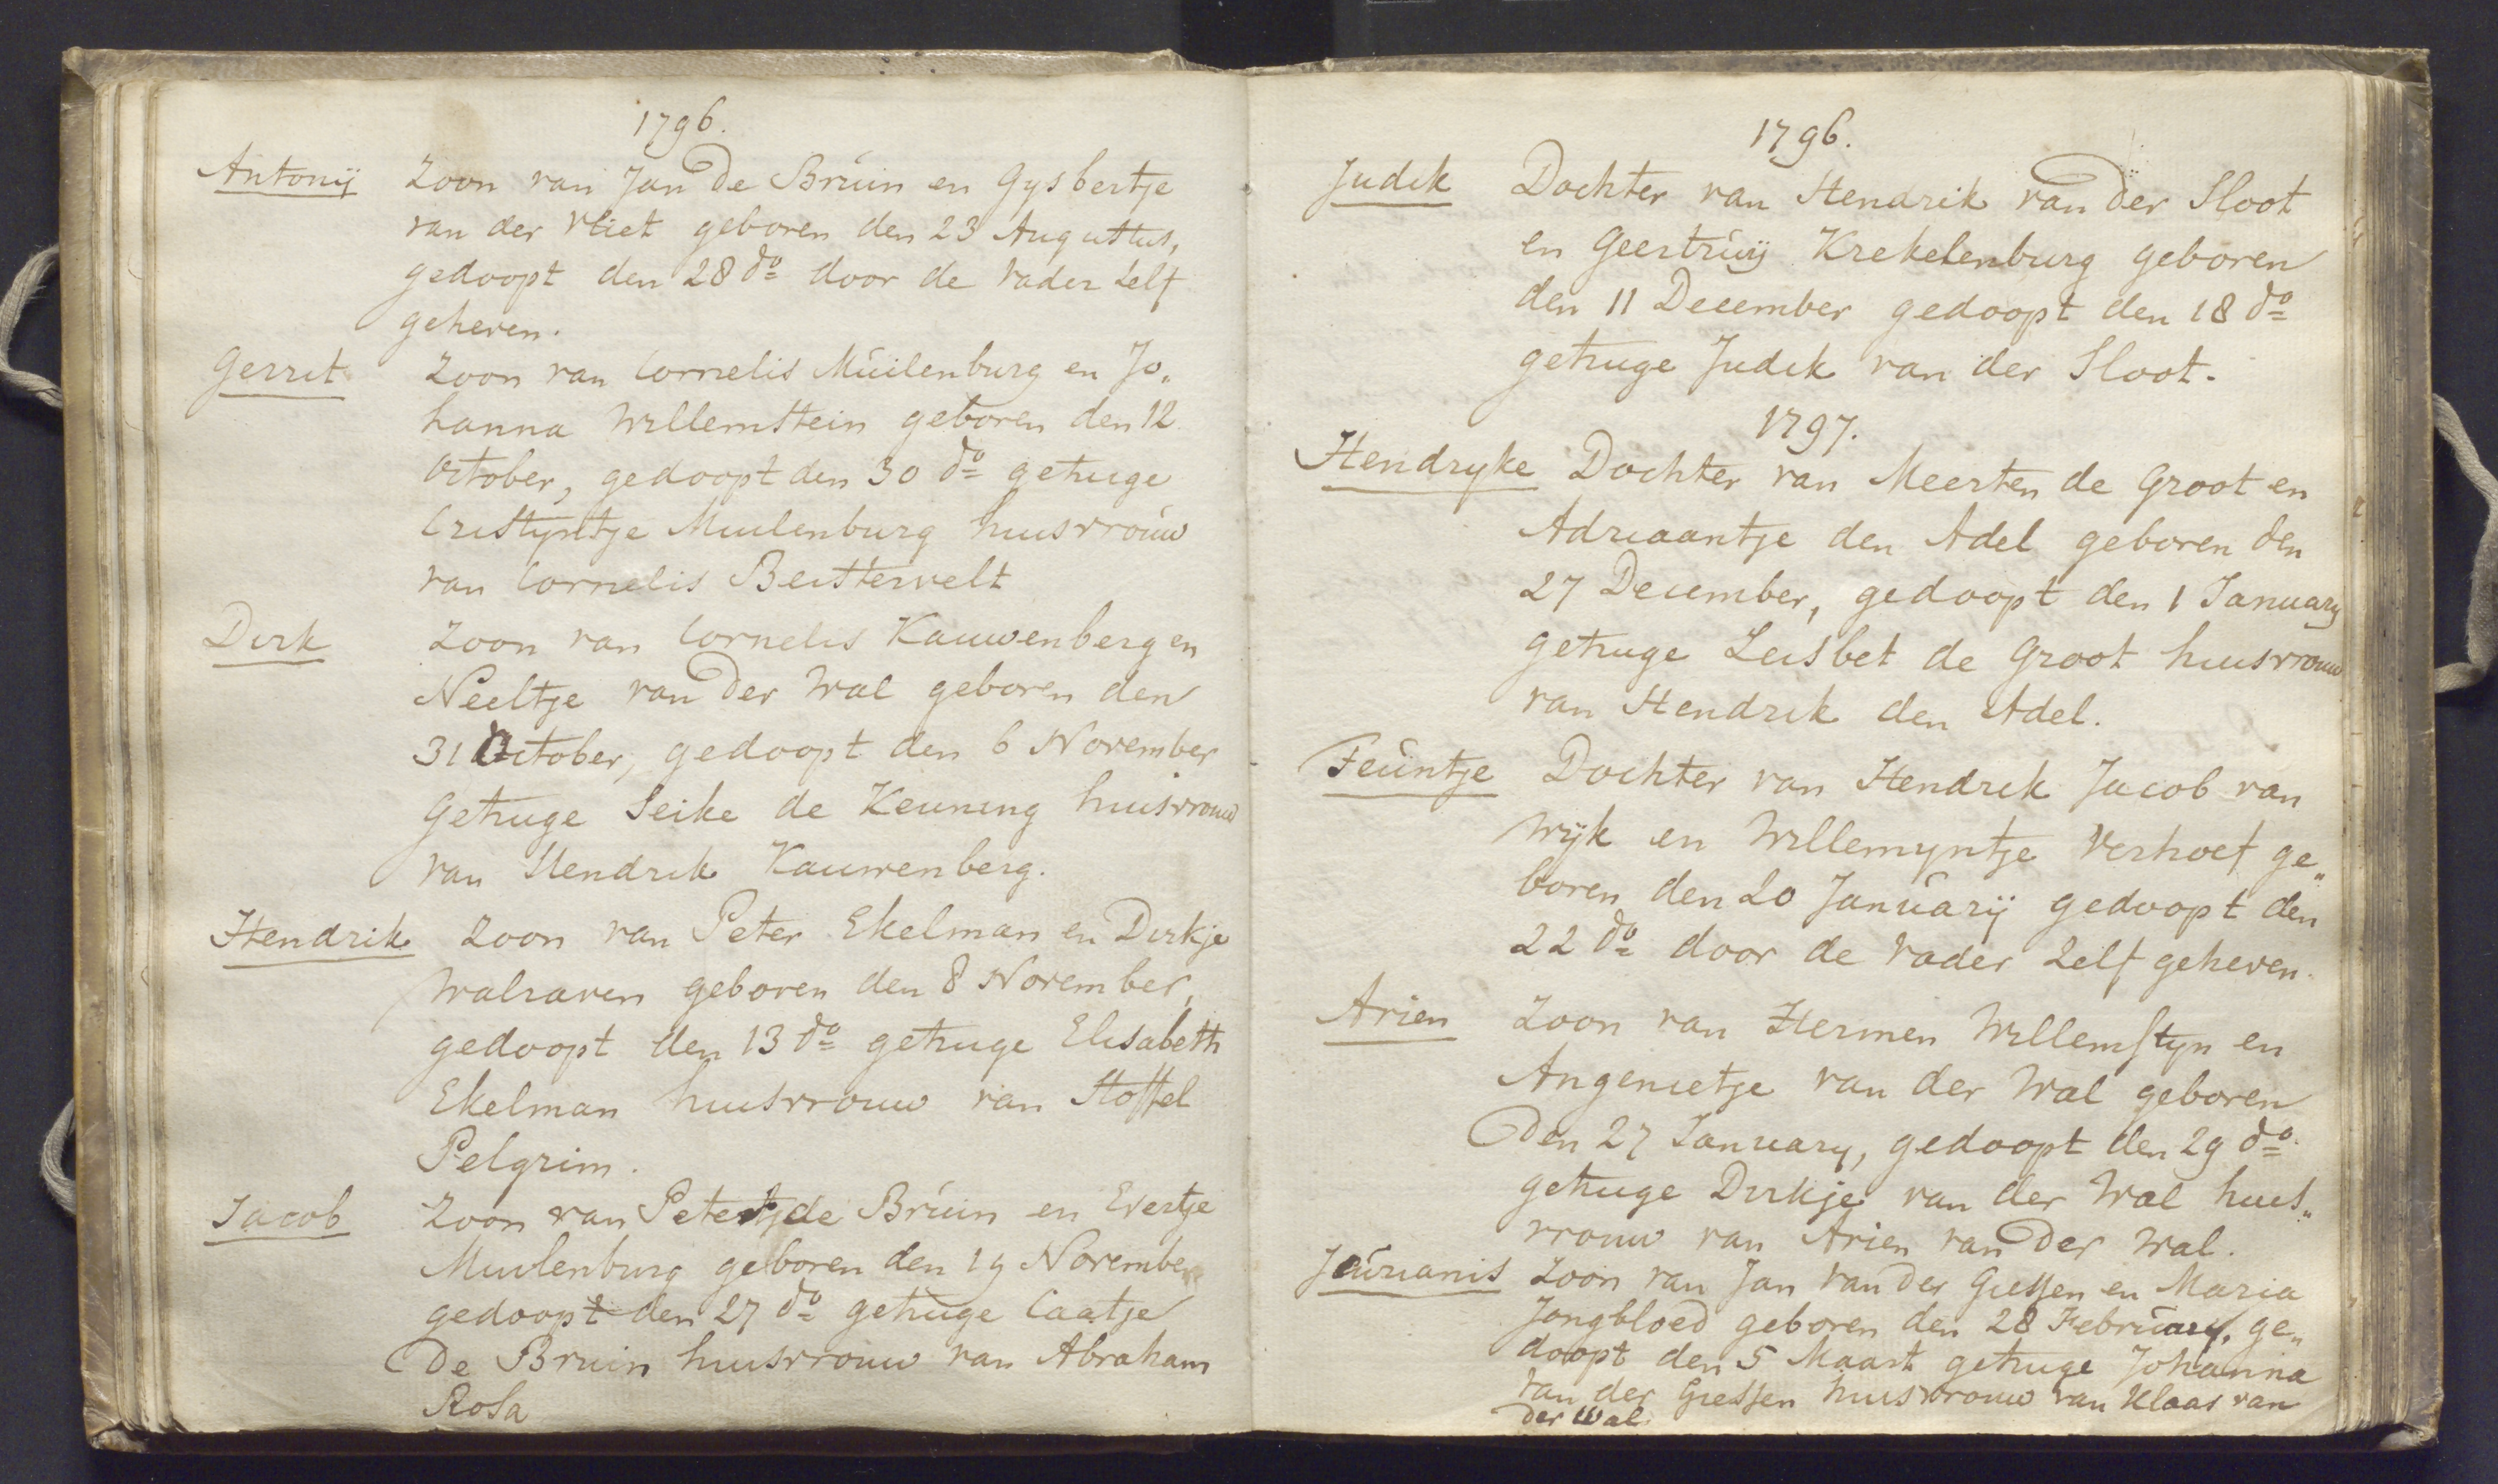 1796.
Antonij Zoon van Jan de Bruin en Gysbertje
van der Vliet geboren den 23 Augustus,
gedoopt den 28 do door de vader zelf
geheven.
Gerrit Zoon van Cornelis Muilenburg en Jo„
hanna Willemstein geboren den 12
October, gedoopt den 30 do getuige
Cristyntje Muilenburg huisvrouw
van Cornelis Beistervelt
Dirk Zoon van Cornelis Kauwenberg en
Neeltje van der Wal geboren den
31 October, gedoopt den 6 November
getuige Seike de Keuning huisvrouw
van Hendrik Kauwenberg.
Hendrik Zoon van Peter Ekelman en Dirkje
Walraven geboren den 8 November,
gedoopt den 13 do getuige Elisabeth
Ekelman huisvrouw van Stoffel
Pelgrim.
Jacob Zoon van Peter de Bruin en Evertje
Muilenburg geboren den 19 November
gedoopt den 27 do getuige Caatje
De Bruin huisvrouw van Abraham
Rosa
1796.
Judik Dochter van Hendrik van der Sloot
en Geertruij Krekelenburg geboren
den 11 December gedoopt den 18 do
getuge Judik van der Sloot.
1797.
Hendryke Dochter van Meerten de Groot en
Adriaantje den Adel geboren den
27 December, gedoopt den 1 January
getuige Leisbet de Groot huisvrouw
van Hendrik den Adel.
Feuntje Dochter van Hendrik Jacob van
Wijk en Willemyntje Verhoef ge„
boren den 20 Januarij gedoopt den
22 do door de vader zelf geheven.
Arien Zoon van Hermen Willemstyn en
Angenietje van der Wal geboren
Den 27 January, gedoopt den 29 do
getuige Dirkje van der Wal huis„
vrouw van Arien van der Wal.
Jeurianis Zoon van Jan van der Giessen en Maria
Jongbloed geboren den 28 February, ge„
doopt den 5 Maart getuige Johanna
van der Giessen huisvrouw van Klaas van
der Wal.